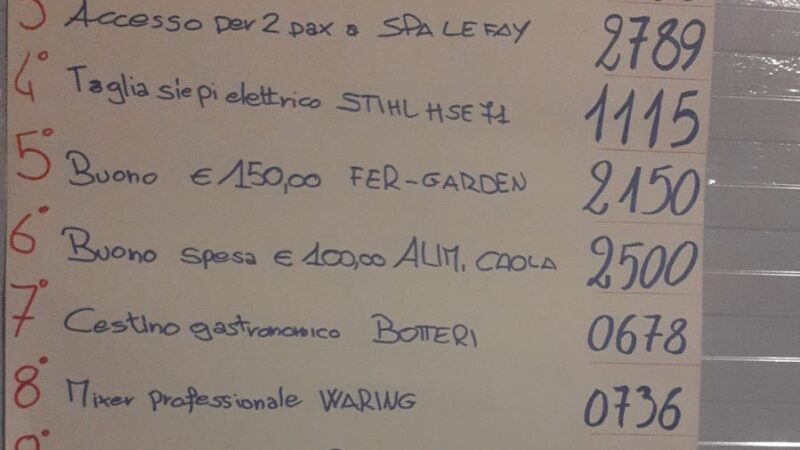 3° Accesso per 2 pax a SPA LE FAY 2789
4° Taglia siepi elettrico STIHL HSE 71 1115
5° Buono € 150,00 FER-GARDEN 2150
6° Buono spesa € 100,00 ALIM. CAOLA 2500
7° Cestino gastronomico BOTTERI 0678
8° Mixer professionale WARING 0736